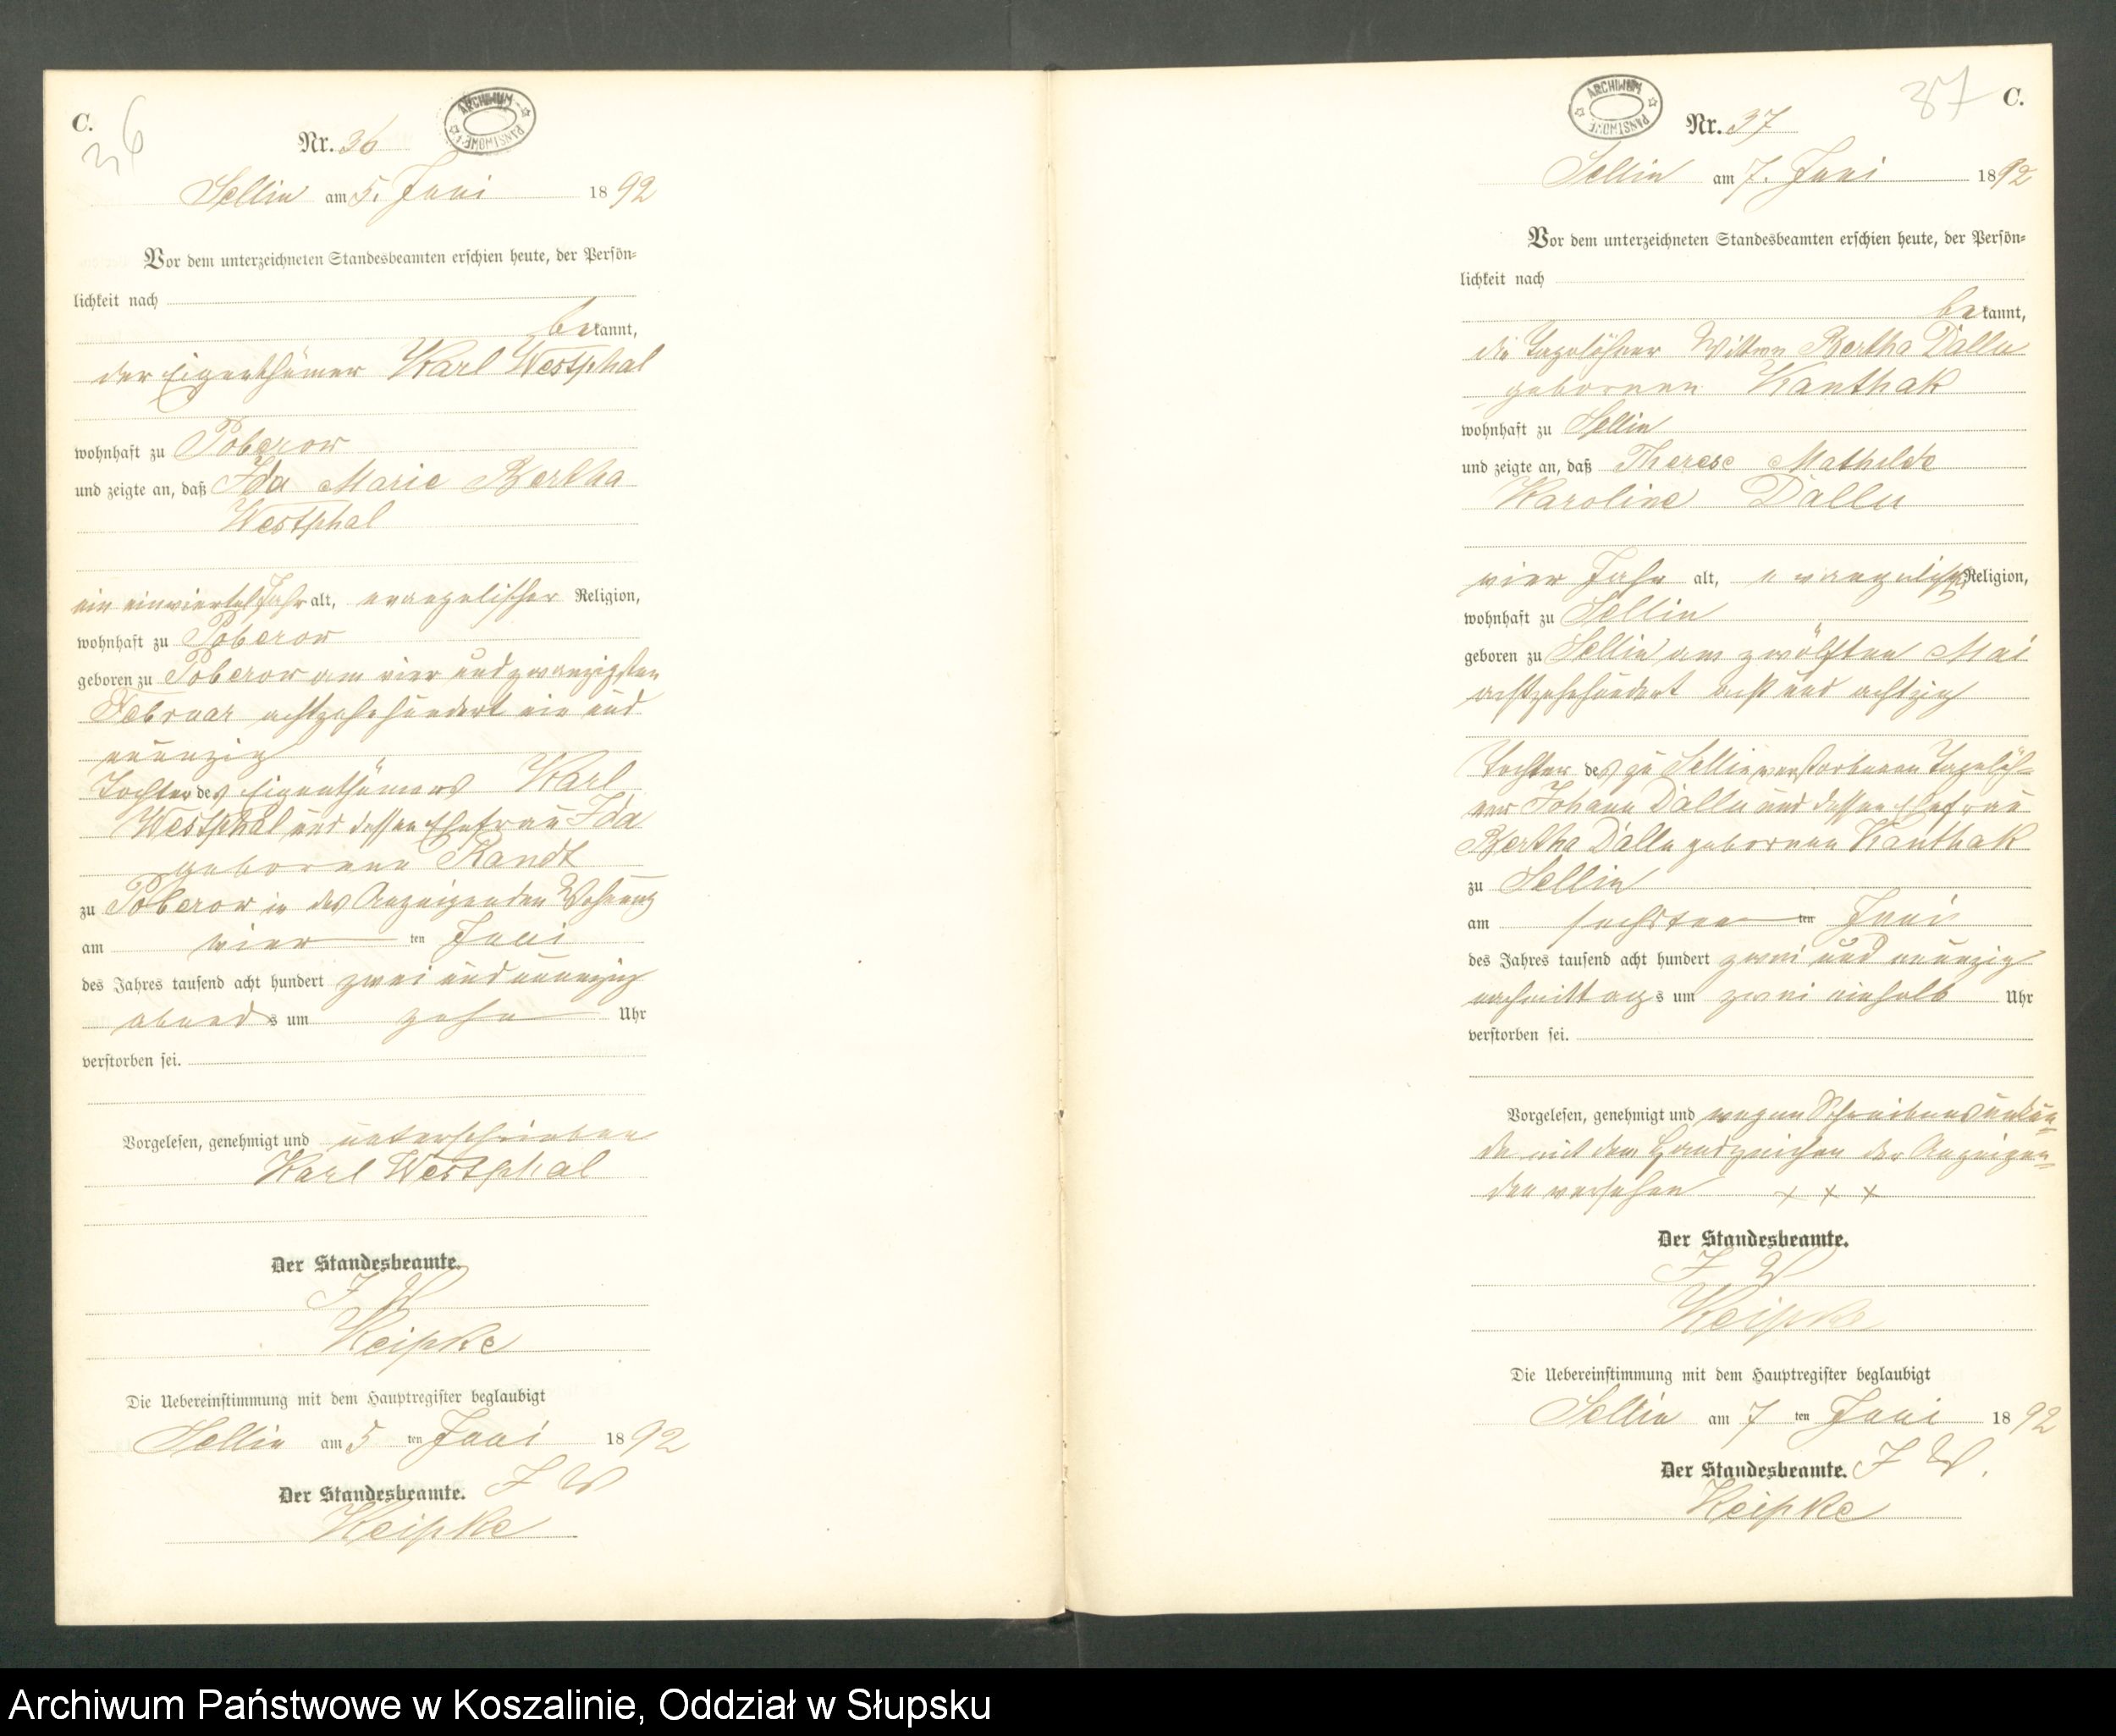 C.
36
ARCHIWUM PAŃSTWOWE
Nr. 36
Sellin am 5. Juni 1892
Vor dem unterzeichneten Standesbeamten erschien heute, der Persön-
lichkeit nach
bekannt,
der Eigenthümer Karl Westphal
wohnhaft zu Poberow
und zeigte an, daß Ida Marie Bertha
Westphal
ein einviertel Jahr alt, evangelischer Religion,
wohnhaft zu Poberow
geboren zu Poberow am vier und zwanzigsten
Februar achtzehnhundert ein und
neunzig
Tochter des Eigenthümers Karl
Westphal und dessen Ehefrau Ida
geborene Randt
zu Poberow in des Anzeigenden Wohnung
am vier ten Juni
des Jahres tausend acht hundert zwei und neunzig
abends um zehn Uhr
verstorben sei.
Vorgelesen, genehmigt und unterschrieben
Karl Westphal
Der Standesbeamte.
J W
Keipke
Die Uebereinstimmung mit dem Hauptregister beglaubigt
Sellin am 5 ten Juni 1892
Der Standesbeamte. J W
Keipke
ARCHIWUM PAŃSTWOWE
37
C.
Nr. 37
Sellin am 7. Juni 1892
Vor dem unterzeichneten Standesbeamten erschien heute, der Persön-
lichkeit nach
bekannt,
die Tagelöhner Wittwe Bertha Dallu
geborene Kanthak
wohnhaft zu Sellin
und zeigte an, daß Therese Mathilde
Karoline Dallu
vier Jahr alt, evangelisch Religion,
wohnhaft zu Sellin
geboren zu Sellin am zwölften Mai
achtzehnhundert acht und achtzig
Tochter des zu Sellin verstorbenen Tagelöh-
ner Johann Dallu und dessen Ehefrau
Bertha Dallu geborenen Kanthak
zu Sellin
am sechsten ten Juni
des Jahres tausend acht hundert zwei und neunzig
nachmittags um zwei einhalb Uhr
verstorben sei.
Vorgelesen, genehmigt und wegen Schreibensunkun-
de mit dem Handzeichen der Anzeigen-
den versehen + + +
Der Standesbeamte.
J W
Keipke
Die Uebereinstimmung mit dem Hauptregister beglaubigt
Sellin am 7 ten Juni 1892
Der Standesbeamte. J W.
Keipke
Archiwum Państwowe w Koszalinie, Oddział w Słupsku